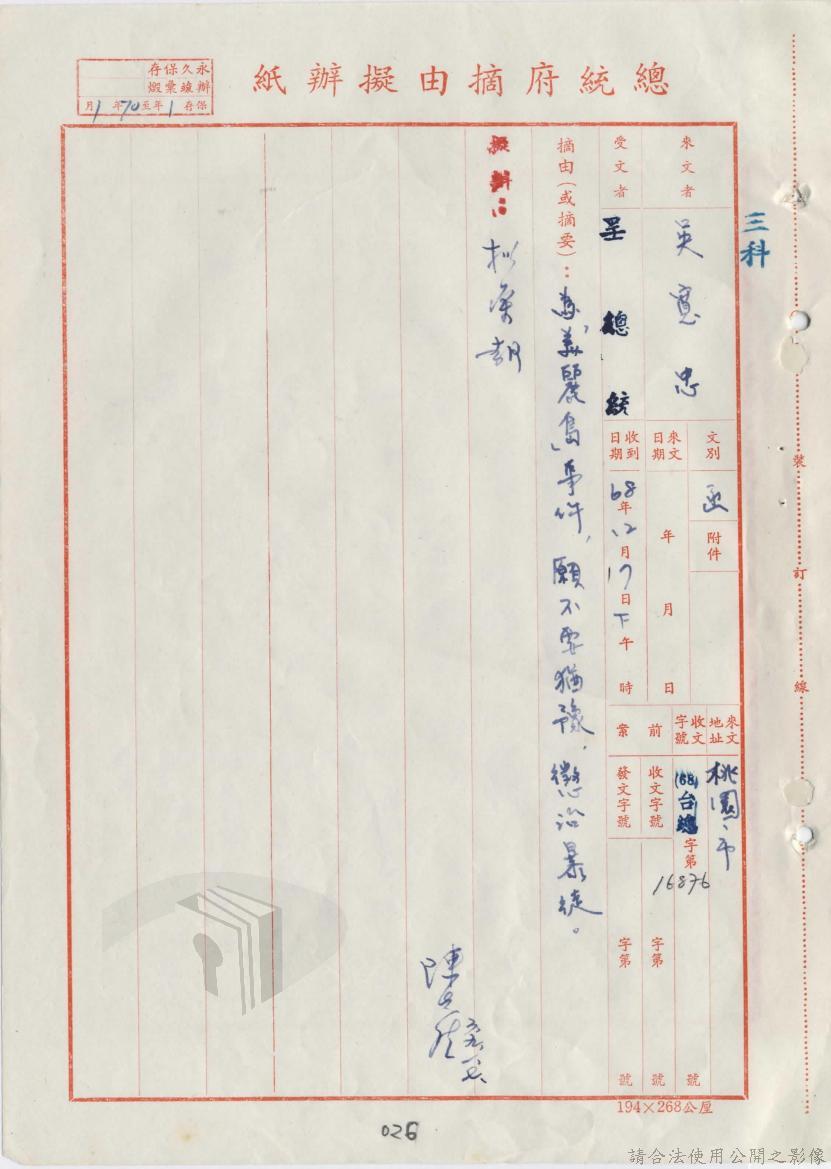 總統府摘由擬辦紙
永久保存
辦竣彙燬
保存1年至70年1月
三科
來文者
吳憲忠
文別
函
附件
來文地址
桃園市
收文字號
(68)台總字第16876號
受文者
呈總統
來文日期
年月日
收到日期
68年12月17日下午時
前案
收文字號
字第號
發文字號
字第號
摘由(或摘要):為「美麗島」事件,願不要猶豫,懲治暴徒。
擬辦:
裝訂線
194×268公厘
026
請合法使用公開之影像